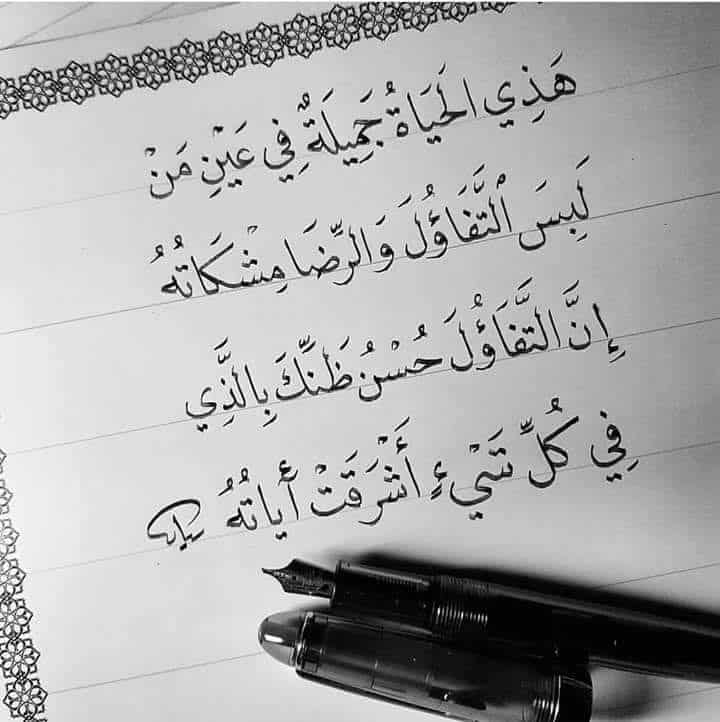 هَذِي الحَيَاةُ جَمِيلَةٌ فِي عَيْنِ مَنْ
لَبِسَ ٱلتَّفَاؤُلَ وَالرِّضَا مِشْكَاتُهُ
إِنَّ التَّفَاؤُلَ حُسْنُ ظَنِّكَ بِالَّذِي
فِي كُلِّ شَيْءٍ أَشْرَقَتْ آياتُهُ